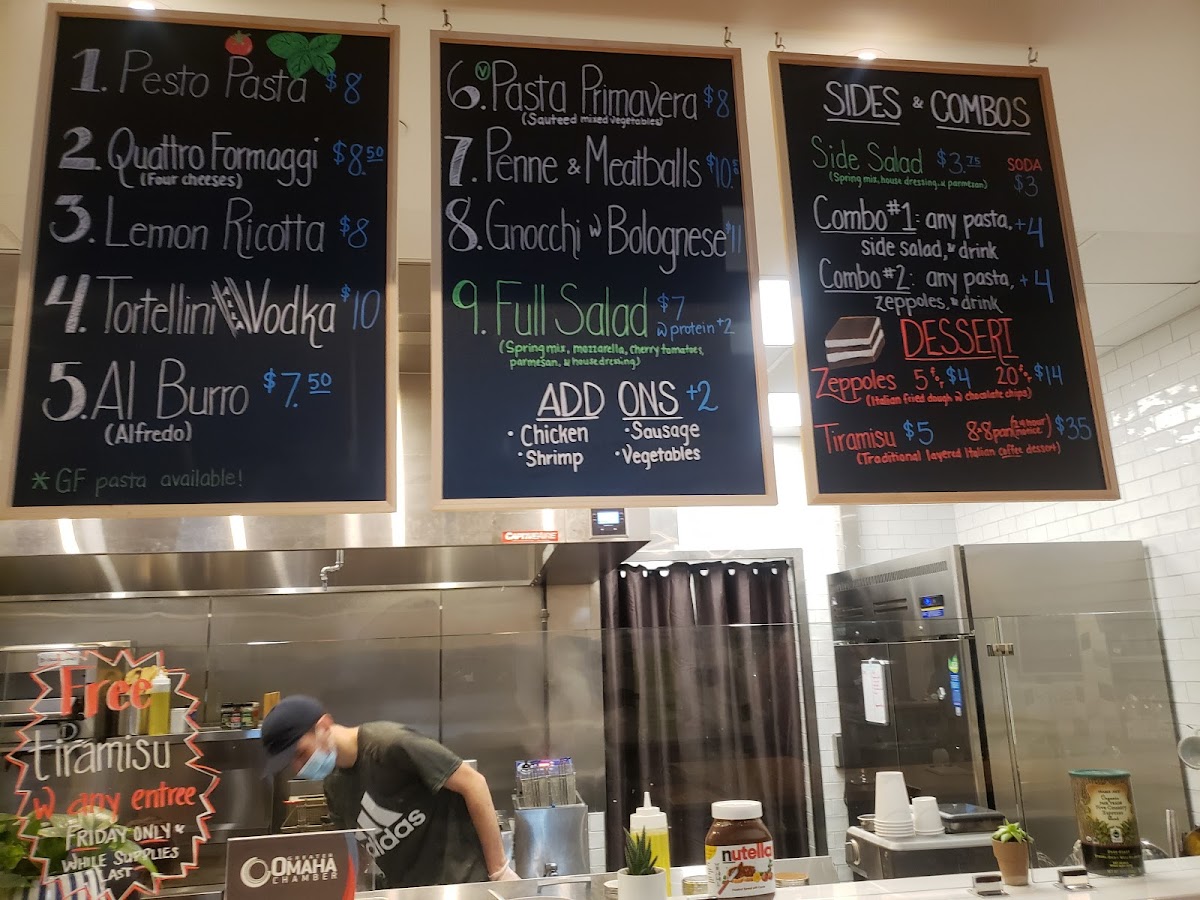 1. Pesto Pasta $8
2. Quattro Formaggi $8.50
(Four cheeses)
3. Lemon Ricotta $8
4. Tortellini Vodka $10
5. Al Burro $7.50
(Alfredo)
* GF pasta available!
6. V Pasta Primavera $8
(Sauteed mixed vegetables)
7. Penne & Meatballs $10.
8. Gnocchi w Bolognese $11
9. Full Salad $7
w protein +2
(Spring mix, mozzarella, cherry tomatoes,
parmesan, & house dressing)
ADD ONS +2
· Chicken · Sausage
· Shrimp · Vegetables
SIDES & COMBOS
Side Salad $3.75
(Spring mix, house dressing, & parmesan)
SODA
$3
Combo #1: any pasta, +4
side salad, & drink
Combo #2: any pasta, +4
zeppoles, & drink
DESSERT
Zeppoles 5 for $4 20 for $14
(Italian fried dough w chocolate chips)
Tiramisu $5 8x8 pan (24 hour notice) $35
(Traditional layered Italian coffee dessert)
CAPTIVEAIRE
Free
tiramisu
w any entree
FRIDAY ONLY &
WHILE SUPPLIES
LAST
GREATER
OMAHA
CHAMBER
adidas
nutella